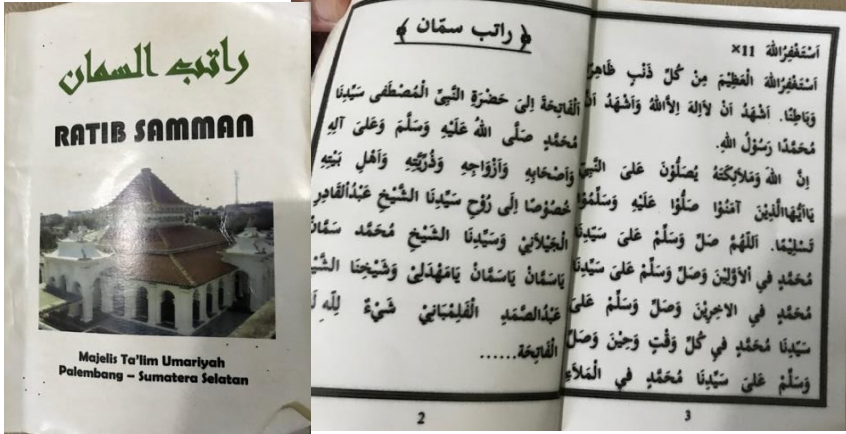 راتب السمان
RATIB SAMMAN
Majelis Ta'lim Umariyah
Palembang – Sumatera Selatan
﴿ راتب سمّان ﴾
اَلْفَاتِحَةَ اِلىَ حَضْرَةِ النَّبِيِّ الْمُصْطَفى سَيِّدِنَا
مُحَمَّدٍ صَلَّى اللهُ عَلَيْهِ وَسَلَّمَ وَعَلىَ آلِهِ
وَاَصْحَابِهِ وَاَزْوَاجِهِ وَذُرِّيَّتِهِ وَاَهْلِ بَيْتِهِ
خُصُوْصًا اِلَى رُوْحِ سَيِّدِنَا الشَّيْخِ عَبْدُالقَادِرِ
الْجَيْلاَنِيْ وَسَيِّدِنَا الشَّيْخِ مُحَمَّد سَمَّانْ
يَاسَمَّانْ يَاسَمَّانْ يَامَهْدَلِيْ وَشَيْخِنَا
عَبْدُالصَّمَدِ الْفَلِمْبَانِيْ شَيْءٌ لِلّهِ
الْفَاتِحَة......
2
اَسْتَغْفِرُاللهَ 11×
اَسْتَغْفِرُاللهَ الْعَظِيْمَ مِنْ كُلِّ ذَنْبٍ ظَاهِرًا
وَبَاطِنًا. اَشْهَدُ اَنْ لاَاِلهَ اِلاَّاللهُ وَاَشْهَدُ اَنَّ
مُحَمَّدًا رَسُوْلُ اللهِ.
اِنَّ اللهَ وَمَلاَئِكَتَهُ يُصَلُّوْنَ عَلىَ النَّبِيِّ
يَااَيُّهَاالَّذِيْنَ آمَنُوْا صَلُّوْا عَلَيْهِ وَسَلِّمُوْا
تَسْلِيْمًا. اَللّهُمَّ صَلِّ وَسَلِّمْ عَلىَ سَيِّدِنَا
مُحَمَّدٍ فِي اْلاَوَّلِيْنَ وَصَلِّ وَسَلِّمْ عَلىَ سَيِّدِنَا
مُحَمَّدٍ فِي اْلاخِرِيْنَ وَصَلِّ وَسَلِّمْ عَلىَ
سَيِّدِنَا مُحَمَّدٍ فِي كُلِّ وَقْتٍ وَحِيْنَ وَصَلِّ
وَسَلِّمْ عَلىَ سَيِّدِنَا مُحَمَّدٍ فِي الْمَلاَءِ
3